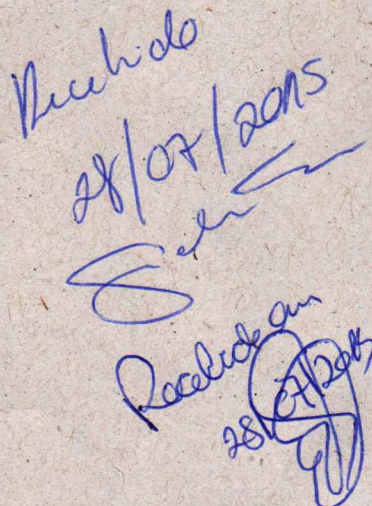 Recebido
28/07/2015
Recebido em
28/07/2015